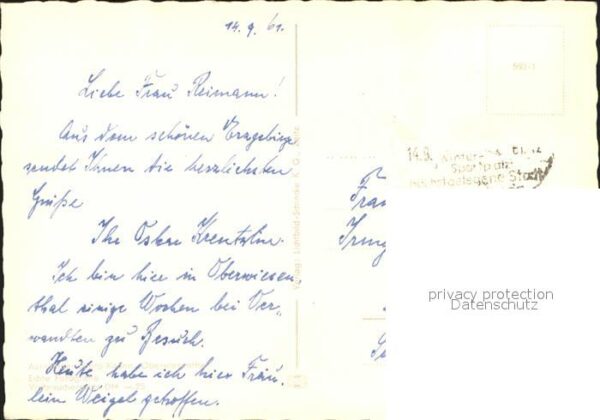 14.9.61.
Liebe Frau Reimann!
Aus dem schönen Erzgebirge
sendet Ihnen die herzlichsten
Grüße
Ihr Oskar
Ich bin hier in Oberwiesen
thal einige Wochen bei Ver-
wandten zu Besuch.
Heute habe ich hier Fräu-
lein Weigel getroffen.
14.9.
Sportplatz
höchstgelegene Stadt
Frau
Irmg
privacy protection
Datenschutz